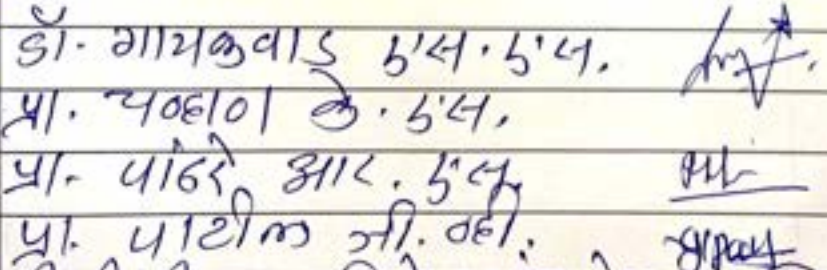 डॉ. गायकवाड एस. एस.
प्रा. चव्हाण के. एस.
प्रा. पांढरे आर. एस.
प्रा. पाटील जी. व्ही.